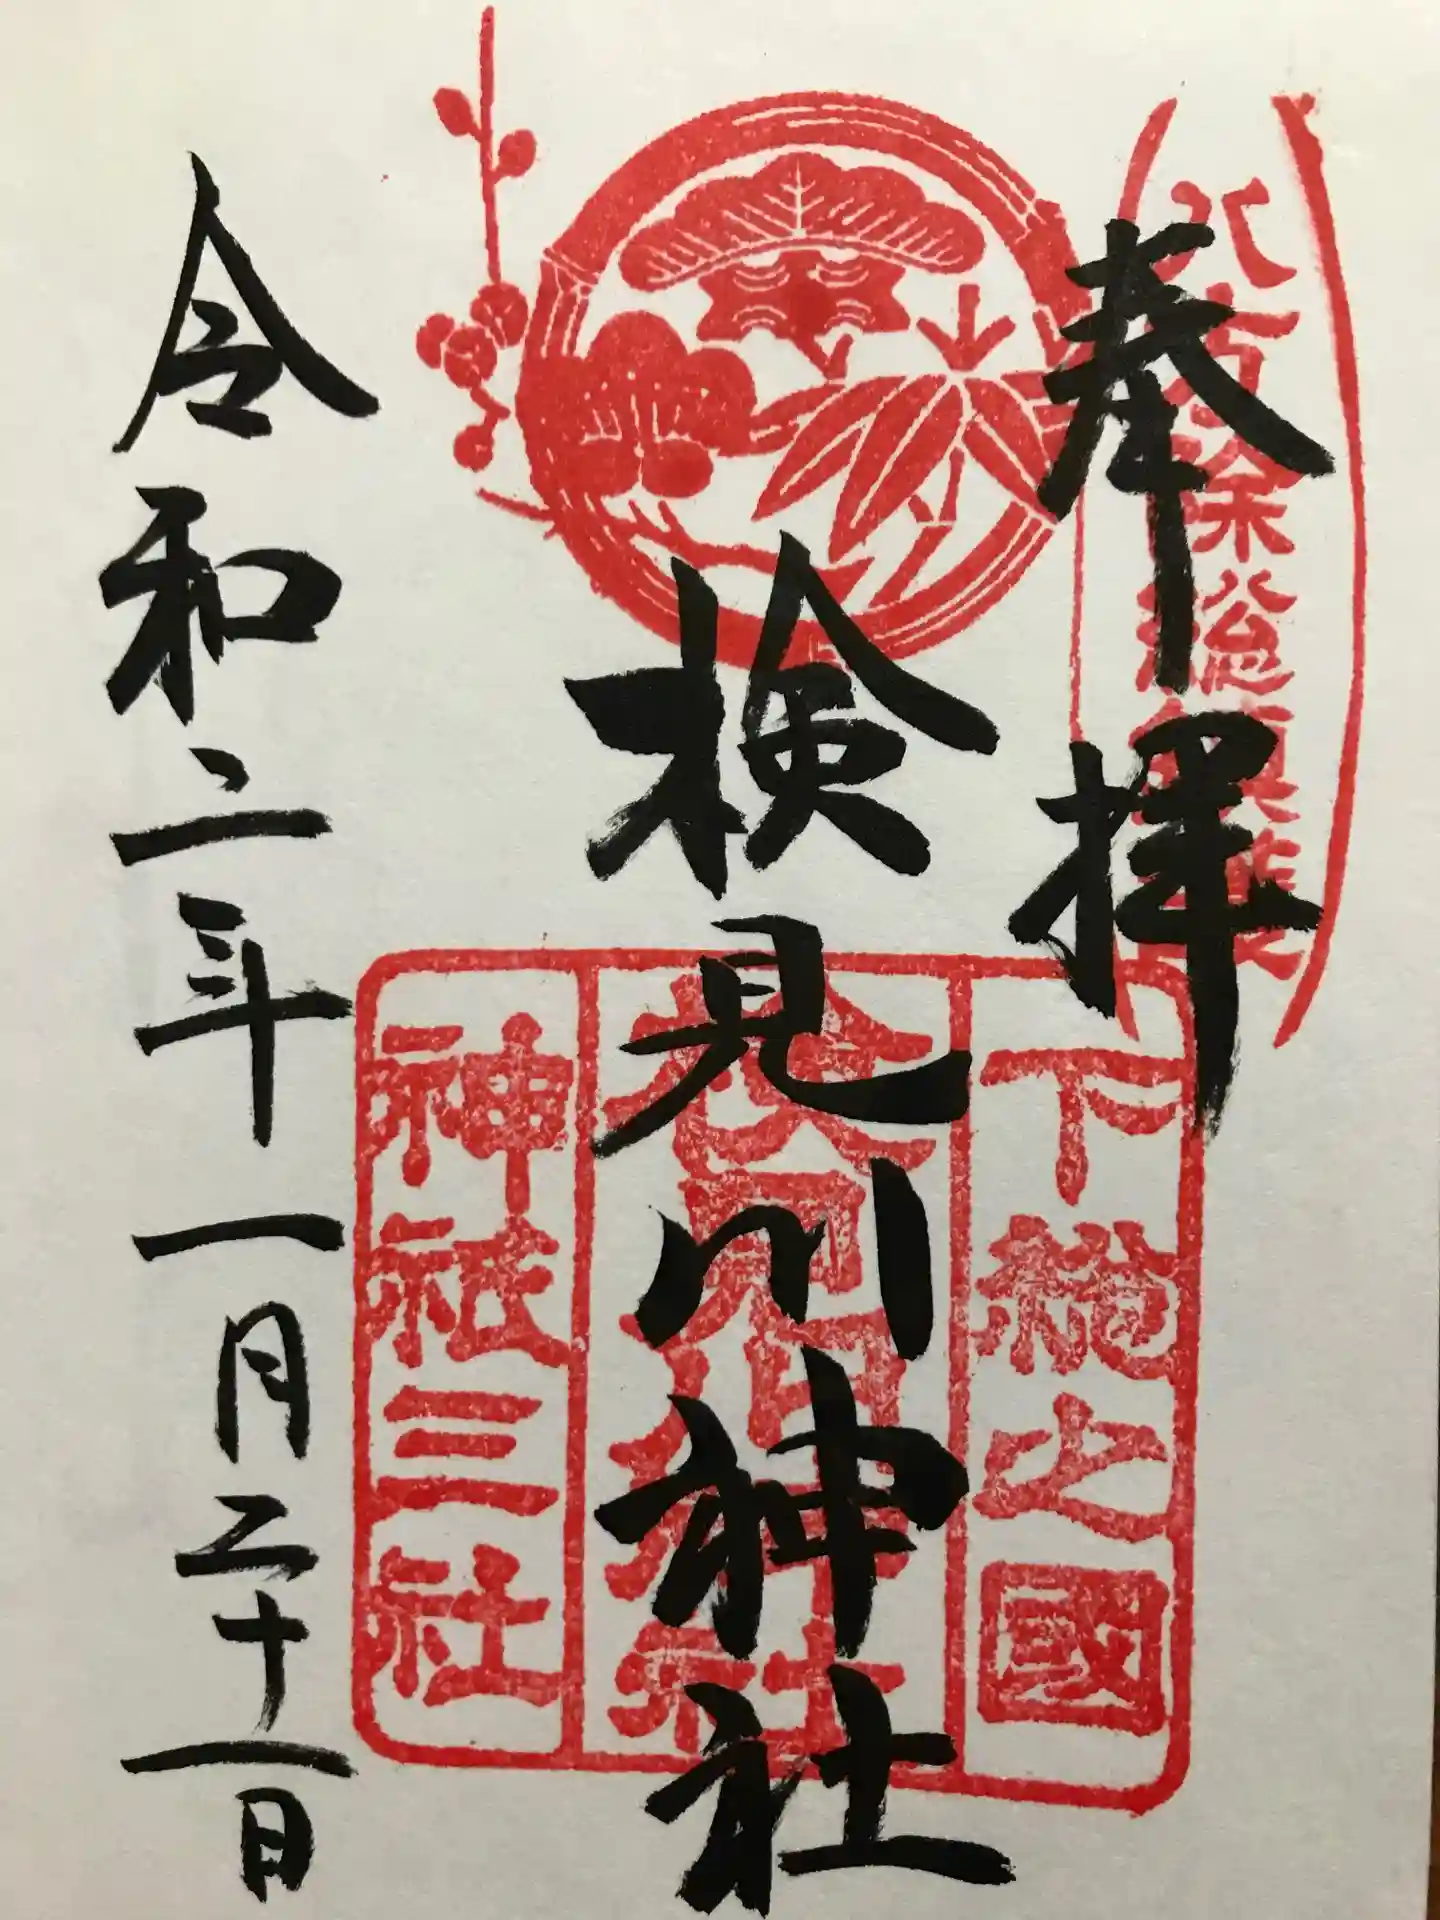 八方除総鎮護
奉拝
下総之國
検見川神社
検見川神社
神祇三社
令和二年一月二十一日